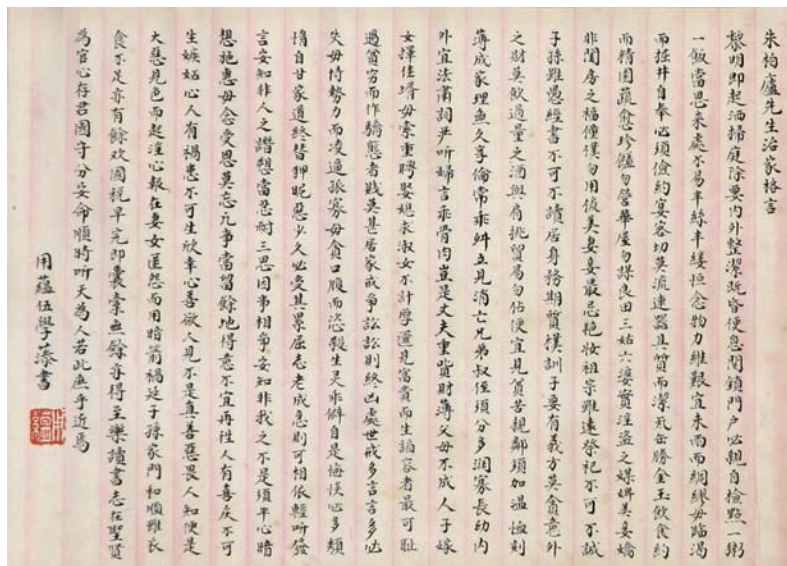 朱柏廬先生治家格言
黎明即起洒掃庭除要内外整潔既昏便息関鎖門户必親自檢點一粥
一飯當思来處不易半絲半縷恒念物力維艱宜未雨而綢繆毋臨渴
而掘井自奉必須儉約宴客切莫流連器具質而潔瓦缶勝金玉飲食約
而精園蔬愈珍饈勿營華屋勿謀良田三姑六婆實淫盗之媒婢美妾嬌
非閨房之福僮僕勿用俊美妻妾最忌艳妝祖宗雖遠祭祀不可不誠
子孫雖愚經書不可不讀居身務期質樸訓子要有義方莫貪意外
之財莫飲過量之酒與肩挑貿易勿佔便宜見貧苦親鄰須加温恤刻
薄成家理無久享倫常乖舛立見消亡兄弟叔侄須分多潤寡長幼内
外宜法肅詞严听婦言乖骨肉豈是丈夫重貲財薄父母不成人子嫁
女擇佳壻毋索重聘娶媳求淑女不計厚奩見富貴而生諂容者最可耻
遇貧窮而作驕態者賤莫甚居家戒争訟訟則終凶處世戒多言言多必
失毋恃勢力而凌逼孤寡毋貪口腹而恣殺生灵乖僻自是悔悮必多頹
惰自甘家道終替狎昵惡少久必受其累屈志老成急則可相依輕听發
言安知非人之譖愬當忍耐三思因事相争安知非我之不是須平心暗
想施惠毋念受恩莫忘凢事當留餘地得意不宜再往人有喜慶不可
生嫉妬心人有禍患不可生欣幸心善欲人見不是真善惡畏人知便是
大惡見色而起淫心報在妻女匿怨而用暗箭禍延子孫家門和順雖衣
食不足亦有餘欢國税早完即囊橐無餘自得至樂讀書志在聖賢
為官心存君國守分安命順時听天為人若此庶乎近焉
用蕴伍學藻書